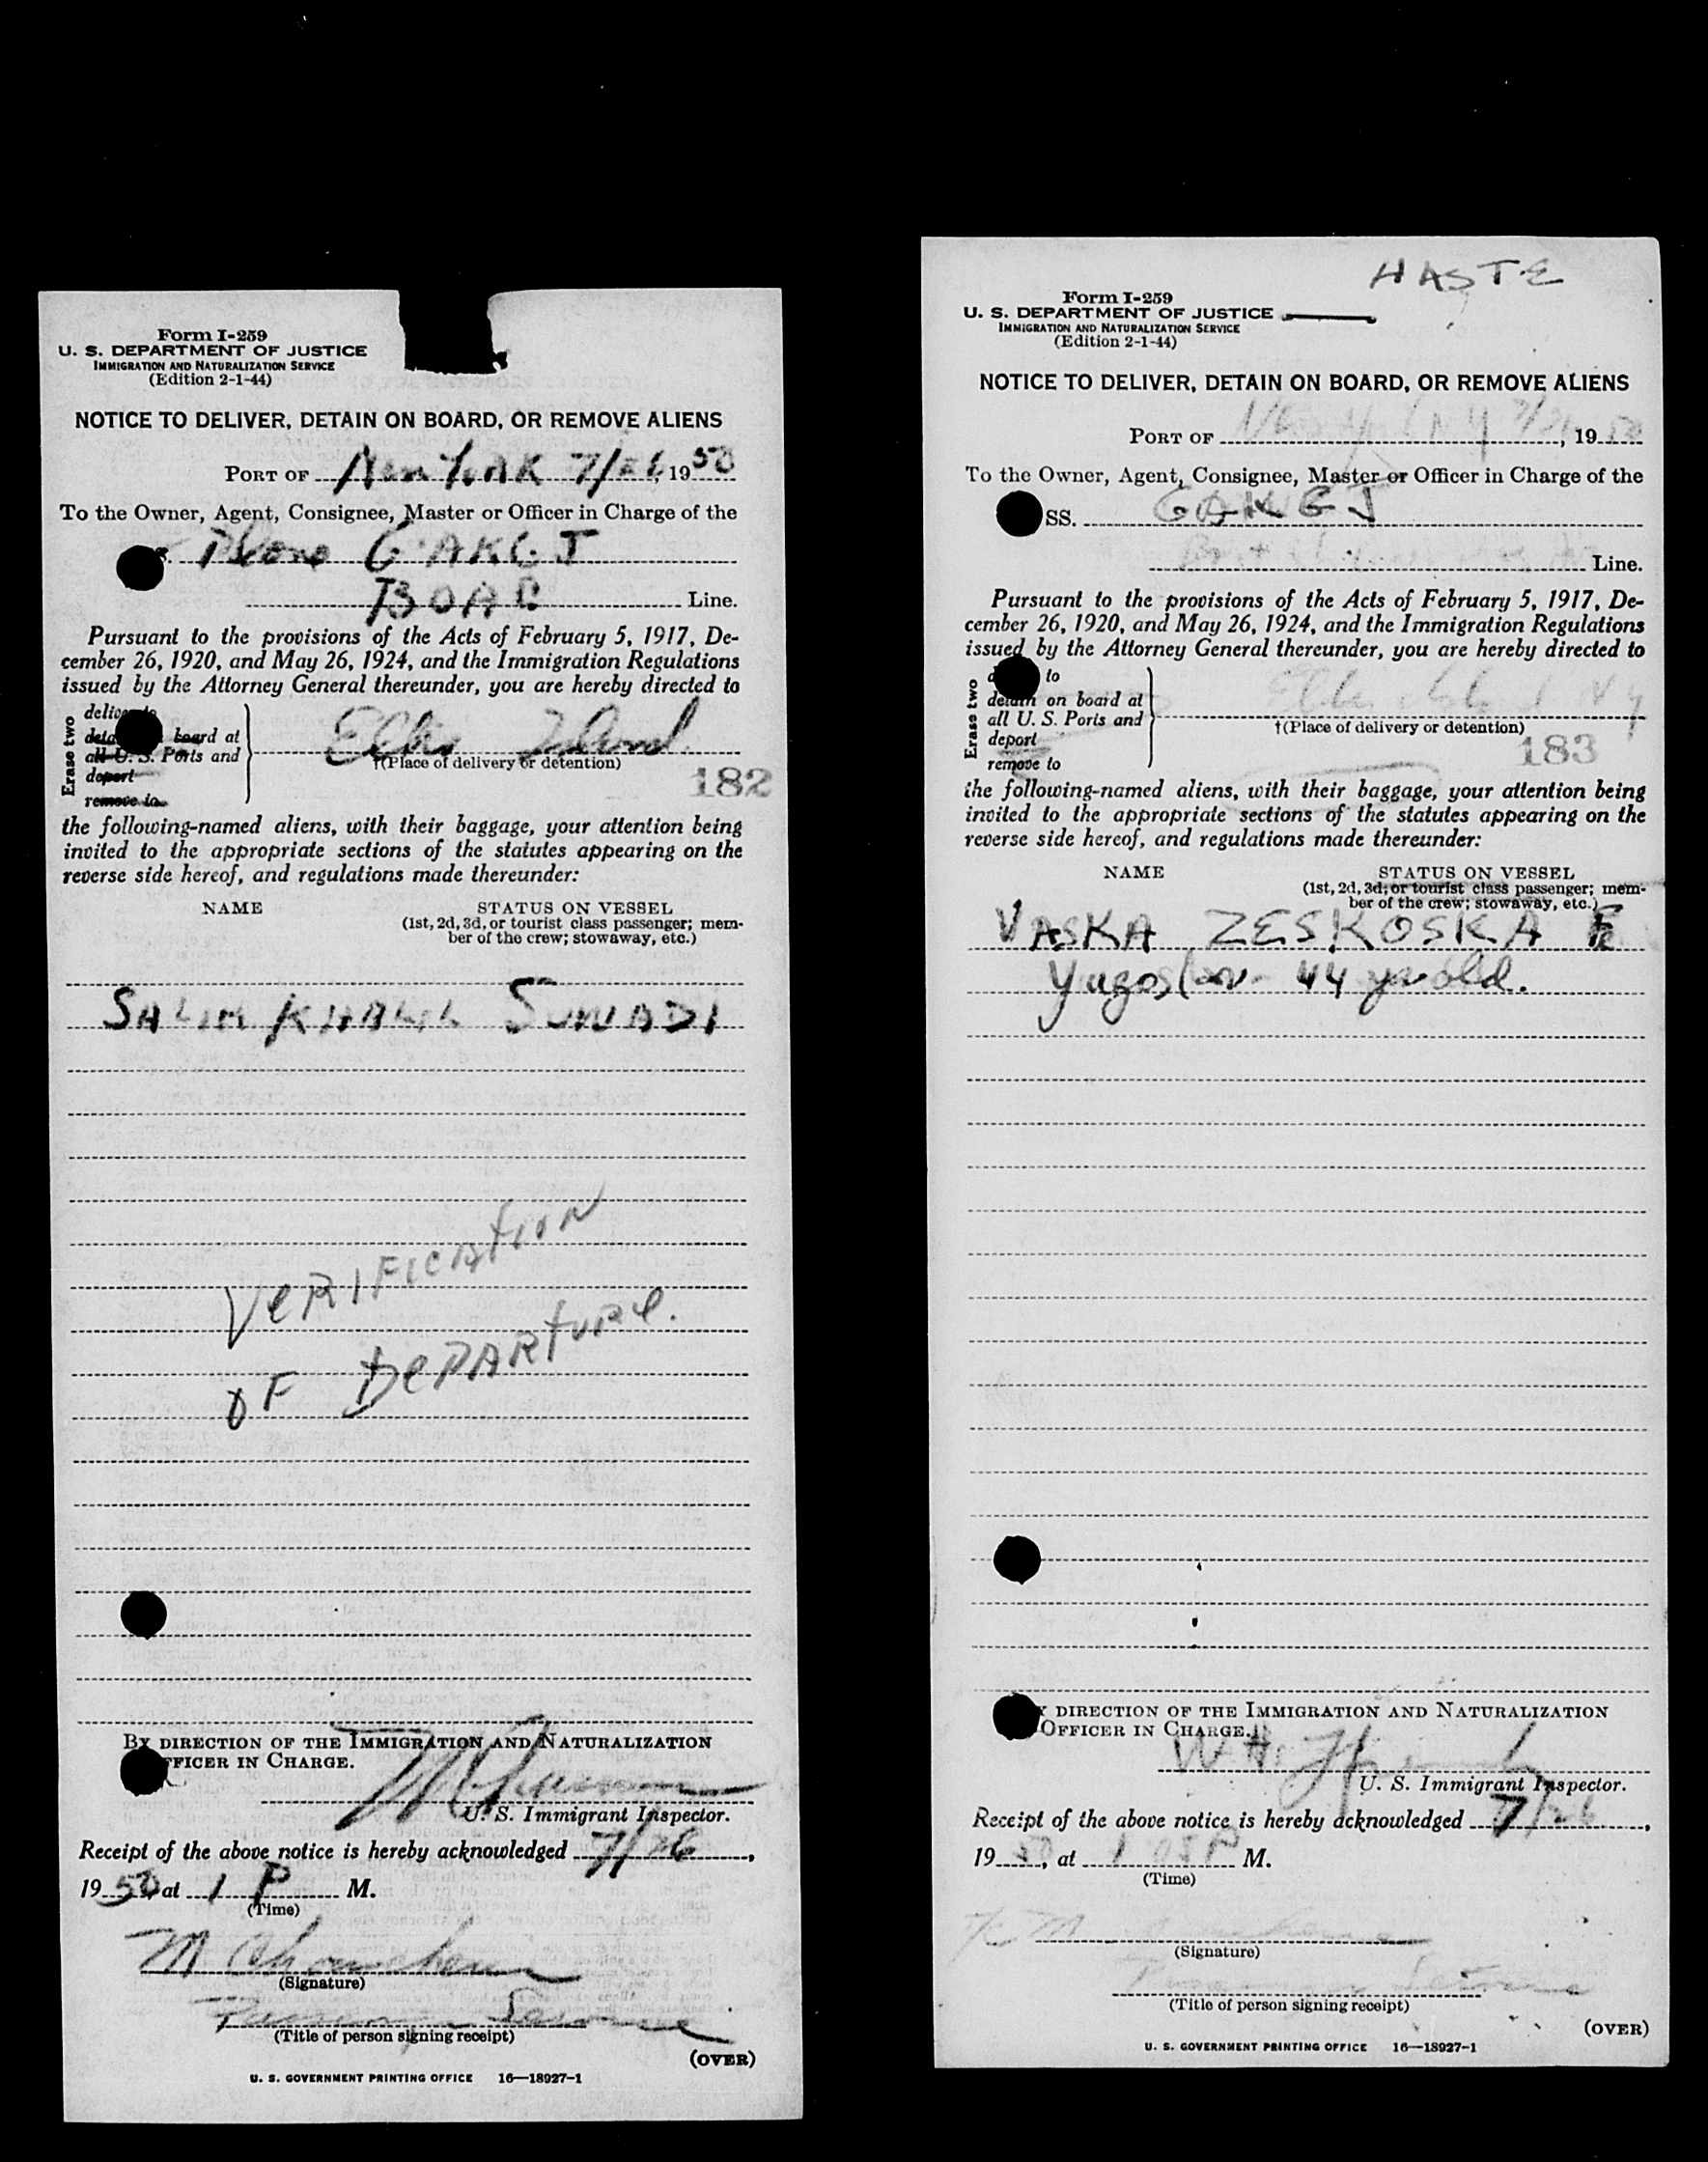 Form I-259
U. S. DEPARTMENT OF JUSTICE
IMMIGRATION AND NATURALIZATION SERVICE
(Edition 2-1-44)
NOTICE TO DELIVER, DETAIN ON BOARD, OR REMOVE ALIENS
PORT OF New York 7/26, 1950
To the Owner, Agent, Consignee, Master or Officer in Charge of the
Plane G AKGJ
BOAC Line.
Pursuant to the provisions of the Acts of February 5, 1917, De-
cember 26, 1920, and May 26, 1924, and the Immigration Regulations
issued by the Attorney General thereunder, you are hereby directed to
Erase two
deliver to
board at
all U. S. Ports and
deport
remove to
Ellis Island
†(Place of delivery or detention)
182
the following-named aliens, with their baggage, your attention being
invited to the appropriate sections of the statutes appearing on the
reverse side hereof, and regulations made thereunder:
NAME STATUS ON VESSEL
(1st, 2d, 3d, or tourist class passenger; mem-
ber of the crew; stowaway, etc.)
SALIM KHALIL
VERIFICATION
OF DEPARTURE.
BY DIRECTION OF THE IMMIGRATION AND NATURALIZATION
OFFICER IN CHARGE.
U. S. Immigrant Inspector.
Receipt of the above notice is hereby acknowledged 7/26,
1950 at 1 P M.
(Time)
M
(Signature)
Service
(Title of person signing receipt)
(OVER)
U. S. GOVERNMENT PRINTING OFFICE 16—18927-1
HASTE
Form I-259
U. S. DEPARTMENT OF JUSTICE
IMMIGRATION AND NATURALIZATION SERVICE
(Edition 2-1-44)
NOTICE TO DELIVER, DETAIN ON BOARD, OR REMOVE ALIENS
PORT OF New York N Y 7/26, 1950
To the Owner, Agent, Consignee, Master or Officer in Charge of the
SS. GAKGJ
Line.
Pursuant to the provisions of the Acts of February 5, 1917, De-
cember 26, 1920, and May 26, 1924, and the Immigration Regulations
issued by the Attorney General thereunder, you are hereby directed to
Erase two
to
detain on board at
all U. S. Ports and
deport
remove to
Ellis Island N Y
†(Place of delivery or detention)
183
the following-named aliens, with their baggage, your attention being
invited to the appropriate sections of the statutes appearing on the
reverse side hereof, and regulations made thereunder:
NAME STATUS ON VESSEL
(1st, 2d, 3d, or tourist class passenger; mem-
ber of the crew; stowaway, etc.)
VASKA ZESKOSKA
Yugoslav 44 yr old.
BY DIRECTION OF THE IMMIGRATION AND NATURALIZATION
OFFICER IN CHARGE.
W.H.
U. S. Immigrant Inspector.
Receipt of the above notice is hereby acknowledged 7/26,
1950, at 1 05 P M.
(Time)
(Signature)
Service
(Title of person signing receipt)
(OVER)
U. S. GOVERNMENT PRINTING OFFICE 16—18927-1